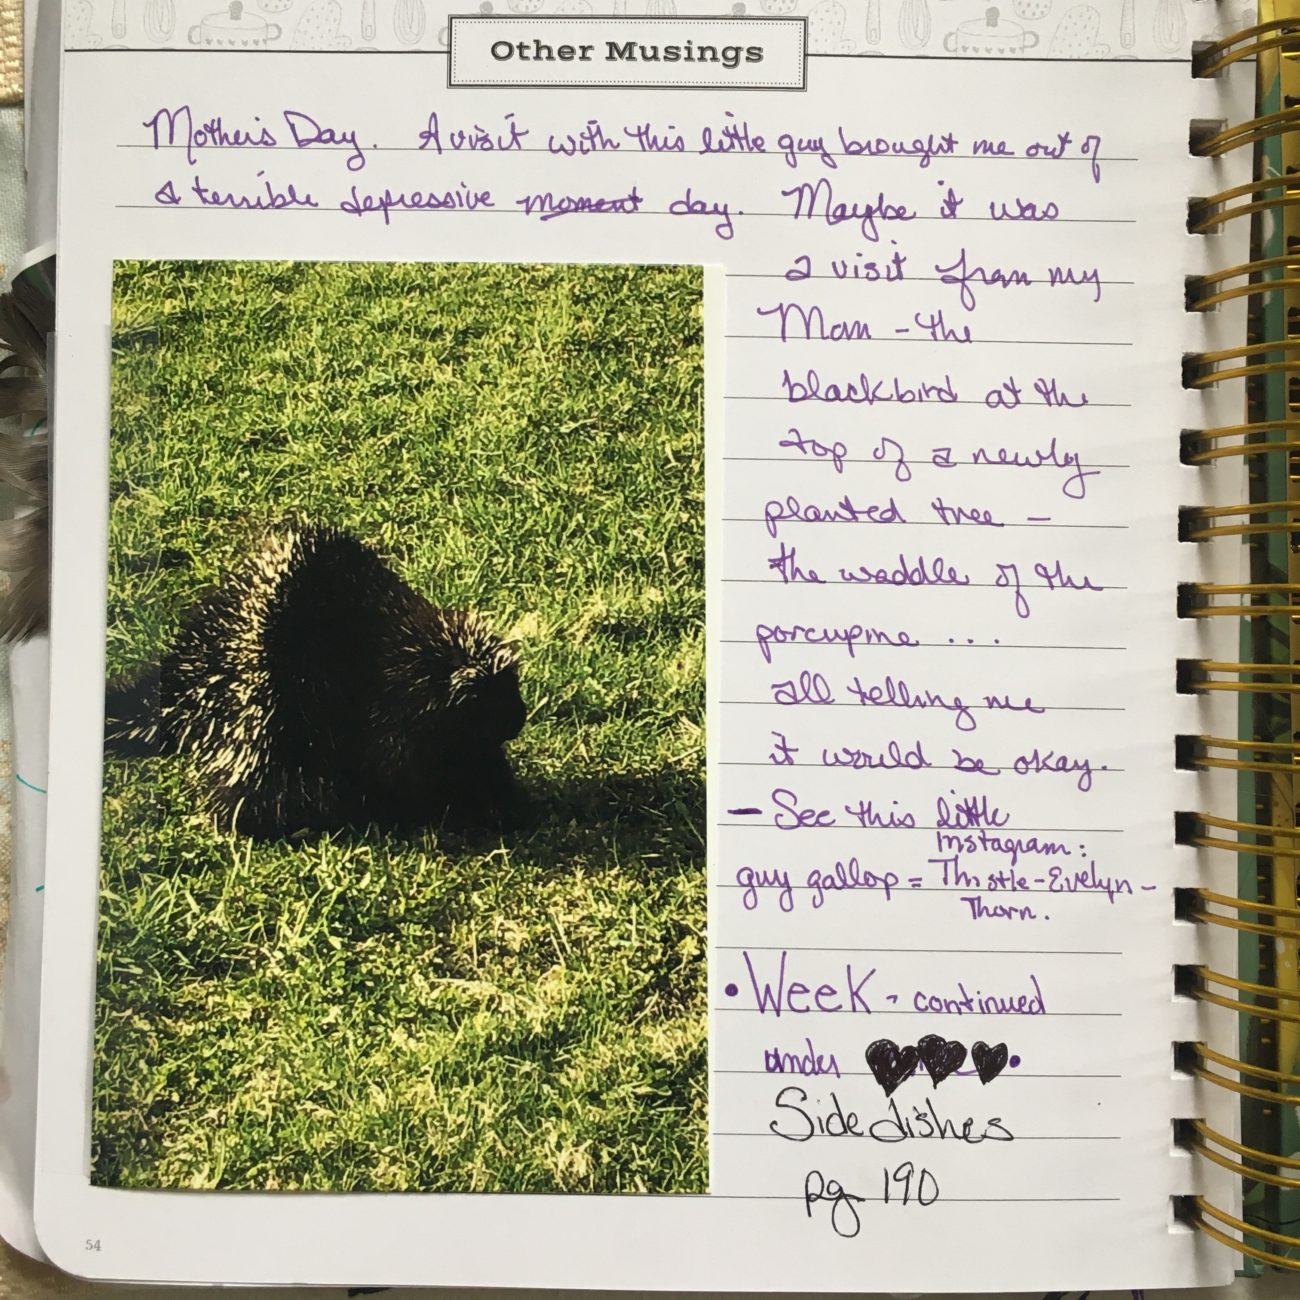 Other Musings
Mother's Day. A visit with this little guy brought me out of
a terrible depressive moment day. Maybe it was
a visit from my
Mom - the
blackbird at the
top of a newly
planted tree -
the waddle of the
porcupine ...
all telling me
it would be okay.
- See this little
Instagram:
guy gallop = Thistle-Evelyn-
Thorn.
• Week - continued
under
Side dishes
pg 190
54